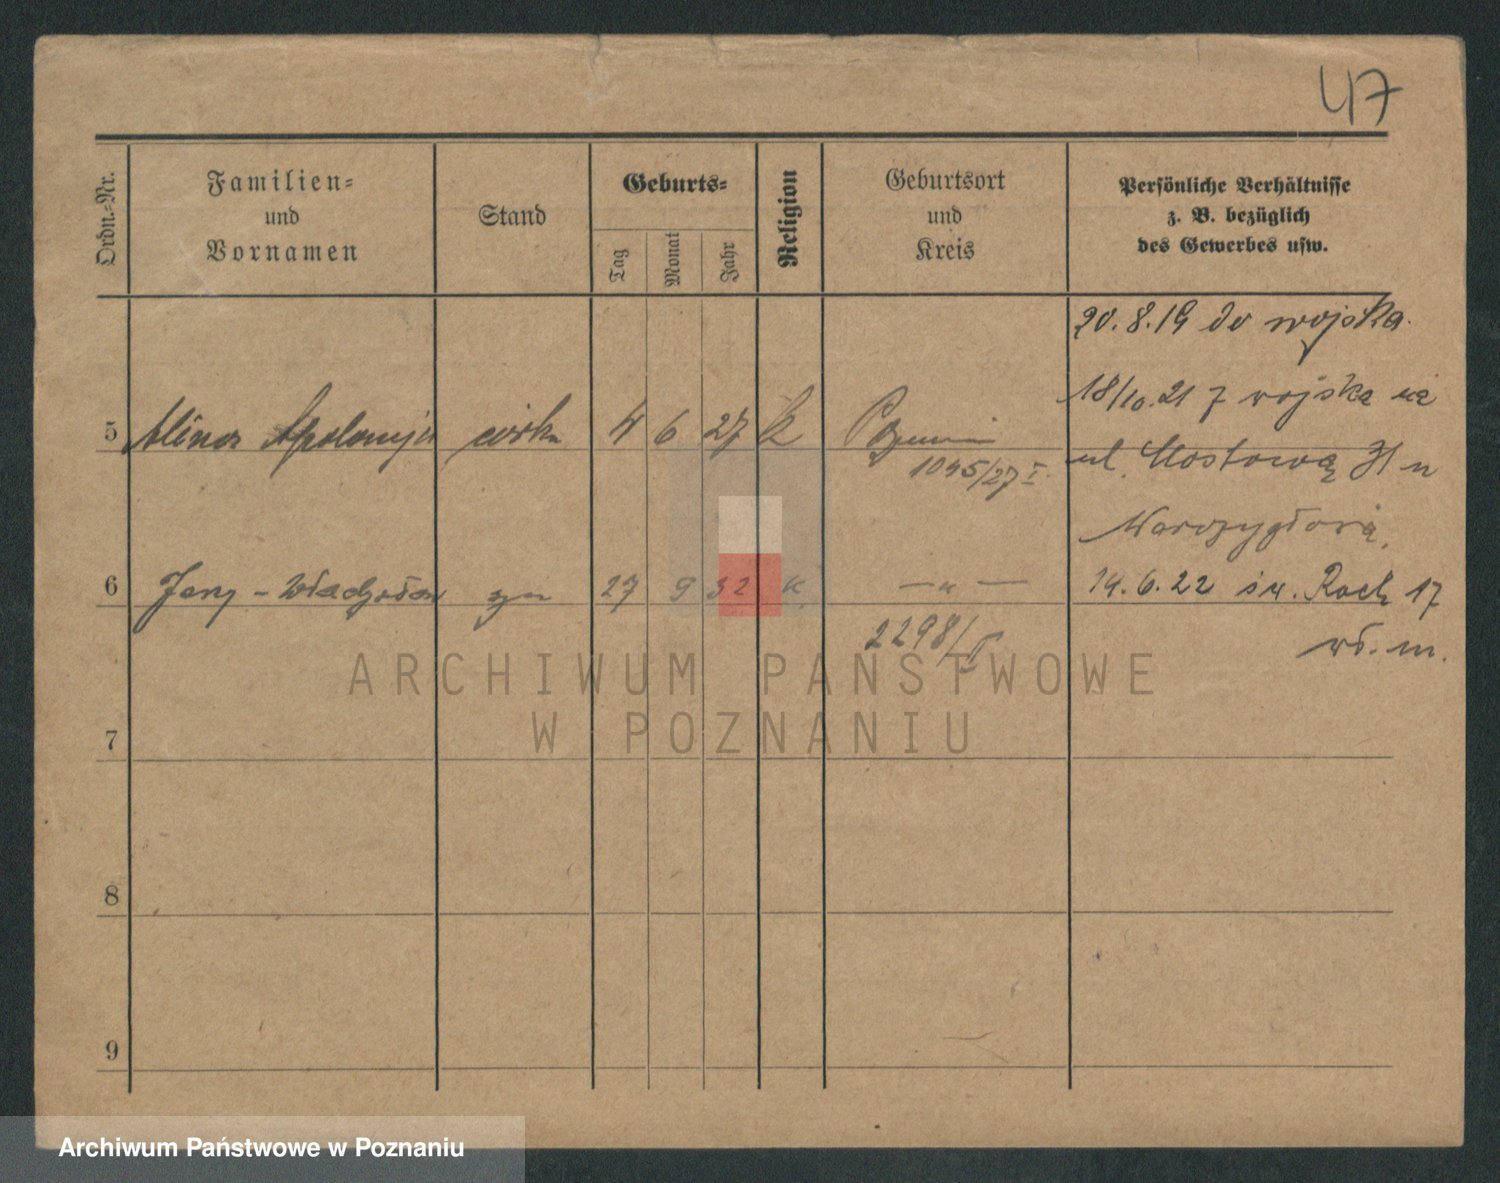 47
Ordn.-Nr.
Familien-
und
Vornamen
Stand
Geburts-
Tag
Monat
Jahr
Religion
Geburtsort
und
Kreis
Persönliche Verhältnisse
z. B. bezüglich
des Gewerbes usw.
20.8.19 do wojska.
18/10.21 z wojska na
5 Alina Apolonja córka 4 6 27 k Poznań
ul. Mostową 31 u
1045/27 I.
6 Jerzy - Władysław syn 27 9 32 k — " —
14.6.22 św. Roch 17
2298/
wł. m.
7
8
9
ARCHIWUM PAŃSTWOWE
W POZNANIU
Archiwum Państwowe w Poznaniu